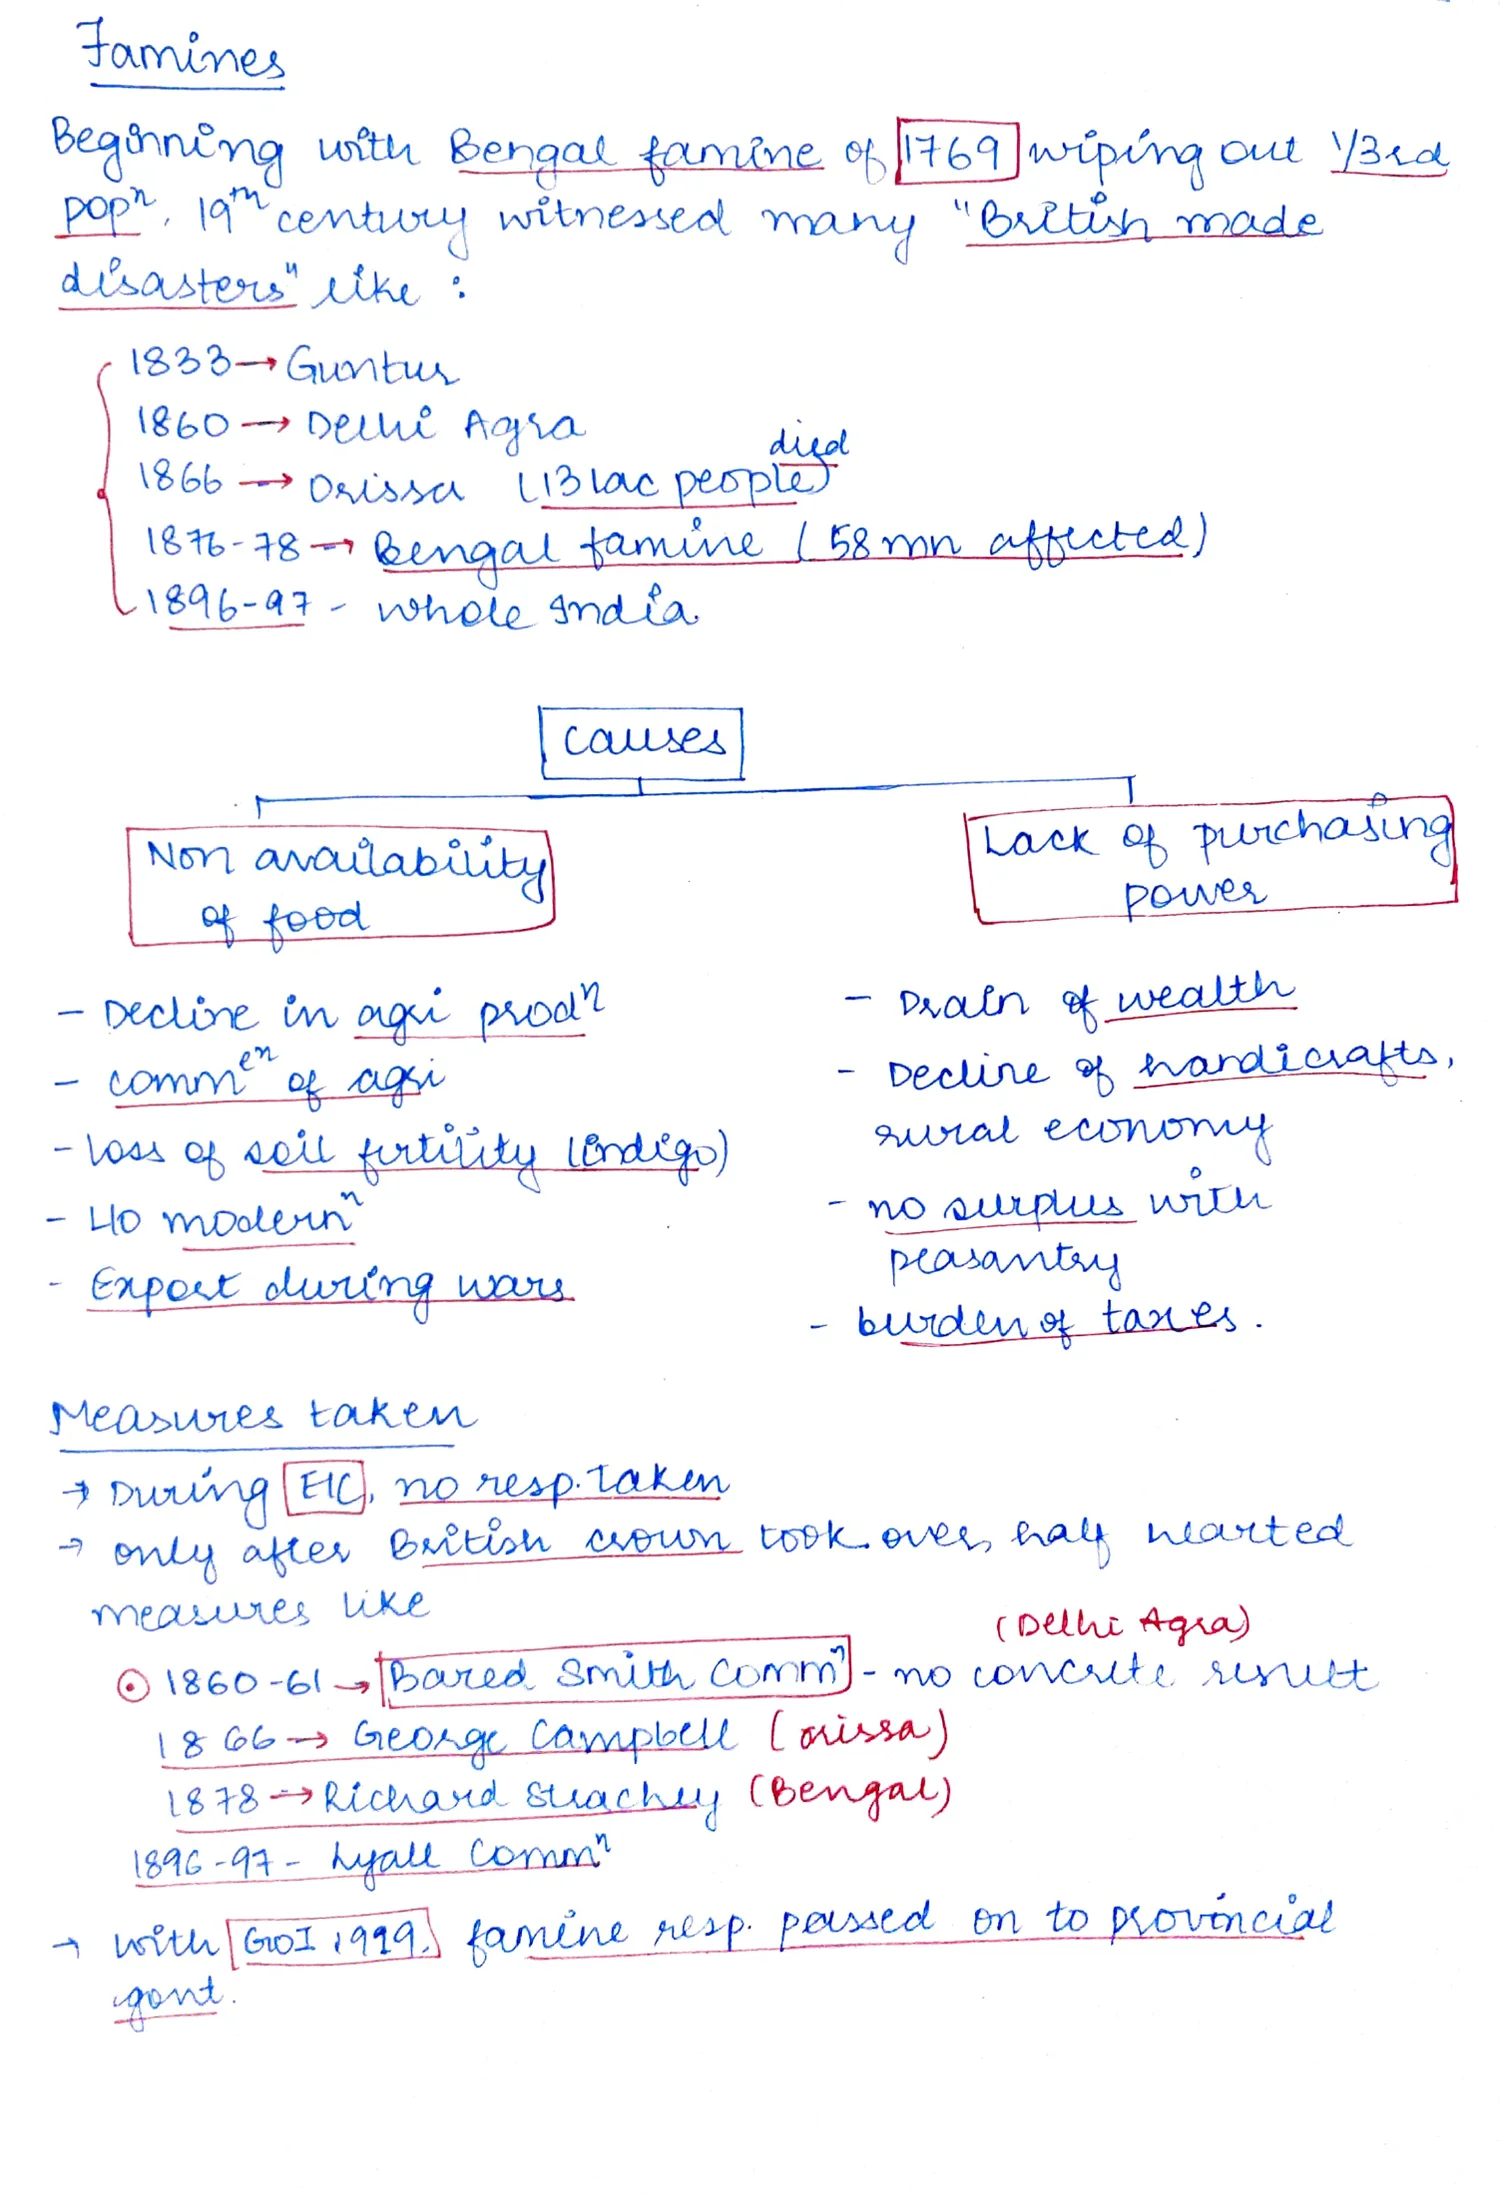 Famines
Beginning with Bengal famine of 1769 wiping out 1/3rd
popⁿ. 19th century witnessed many "British made
disasters" like :
1833 → Guntur
1860 → Delhi Agra
1866 → Orissa (13 lac people) died
1876-78 → Bengal famine (58 mn affected)
1896-97 - whole India
Causes
Non availability
of food
Lack of purchasing
power
- Decline in agri prodⁿ
- commᵉⁿ of agri
- loss of soil fertility (indigo)
- no modernⁿ
- Export during wars
- Drain of wealth
- Decline of handicrafts,
rural economy
- no surplus with
peasantry
- burden of taxes.
Measures taken
→ During EIC, no resp. taken
→ only after British crown took over, half hearted
measures like
(Delhi Agra)
⊙ 1860-61 → Bared Smith Commⁿ - no concrete result
1866 → George Campbell (orissa)
1878 → Richard Strachey (Bengal)
1896-97 - Lyall Commⁿ
→ with GoI, 1919, famine resp. passed on to provincial
govt.